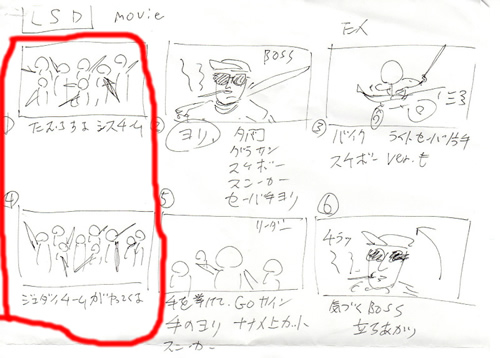 LSD movie
BOSS
① たたずむ シスチーム
② ヨリ
タバコ
グラサン
スケボー
スニーカー
セーバーヨリ
③ バイク ライトセーバー
スケボー ver.も
④
ジェダイチームがやってくる
⑤
リーダー
手を挙げて、GOサイン
手のヨリ ナナメ上カット
スニーカー
⑥
気づくBOSS
立ちあがり